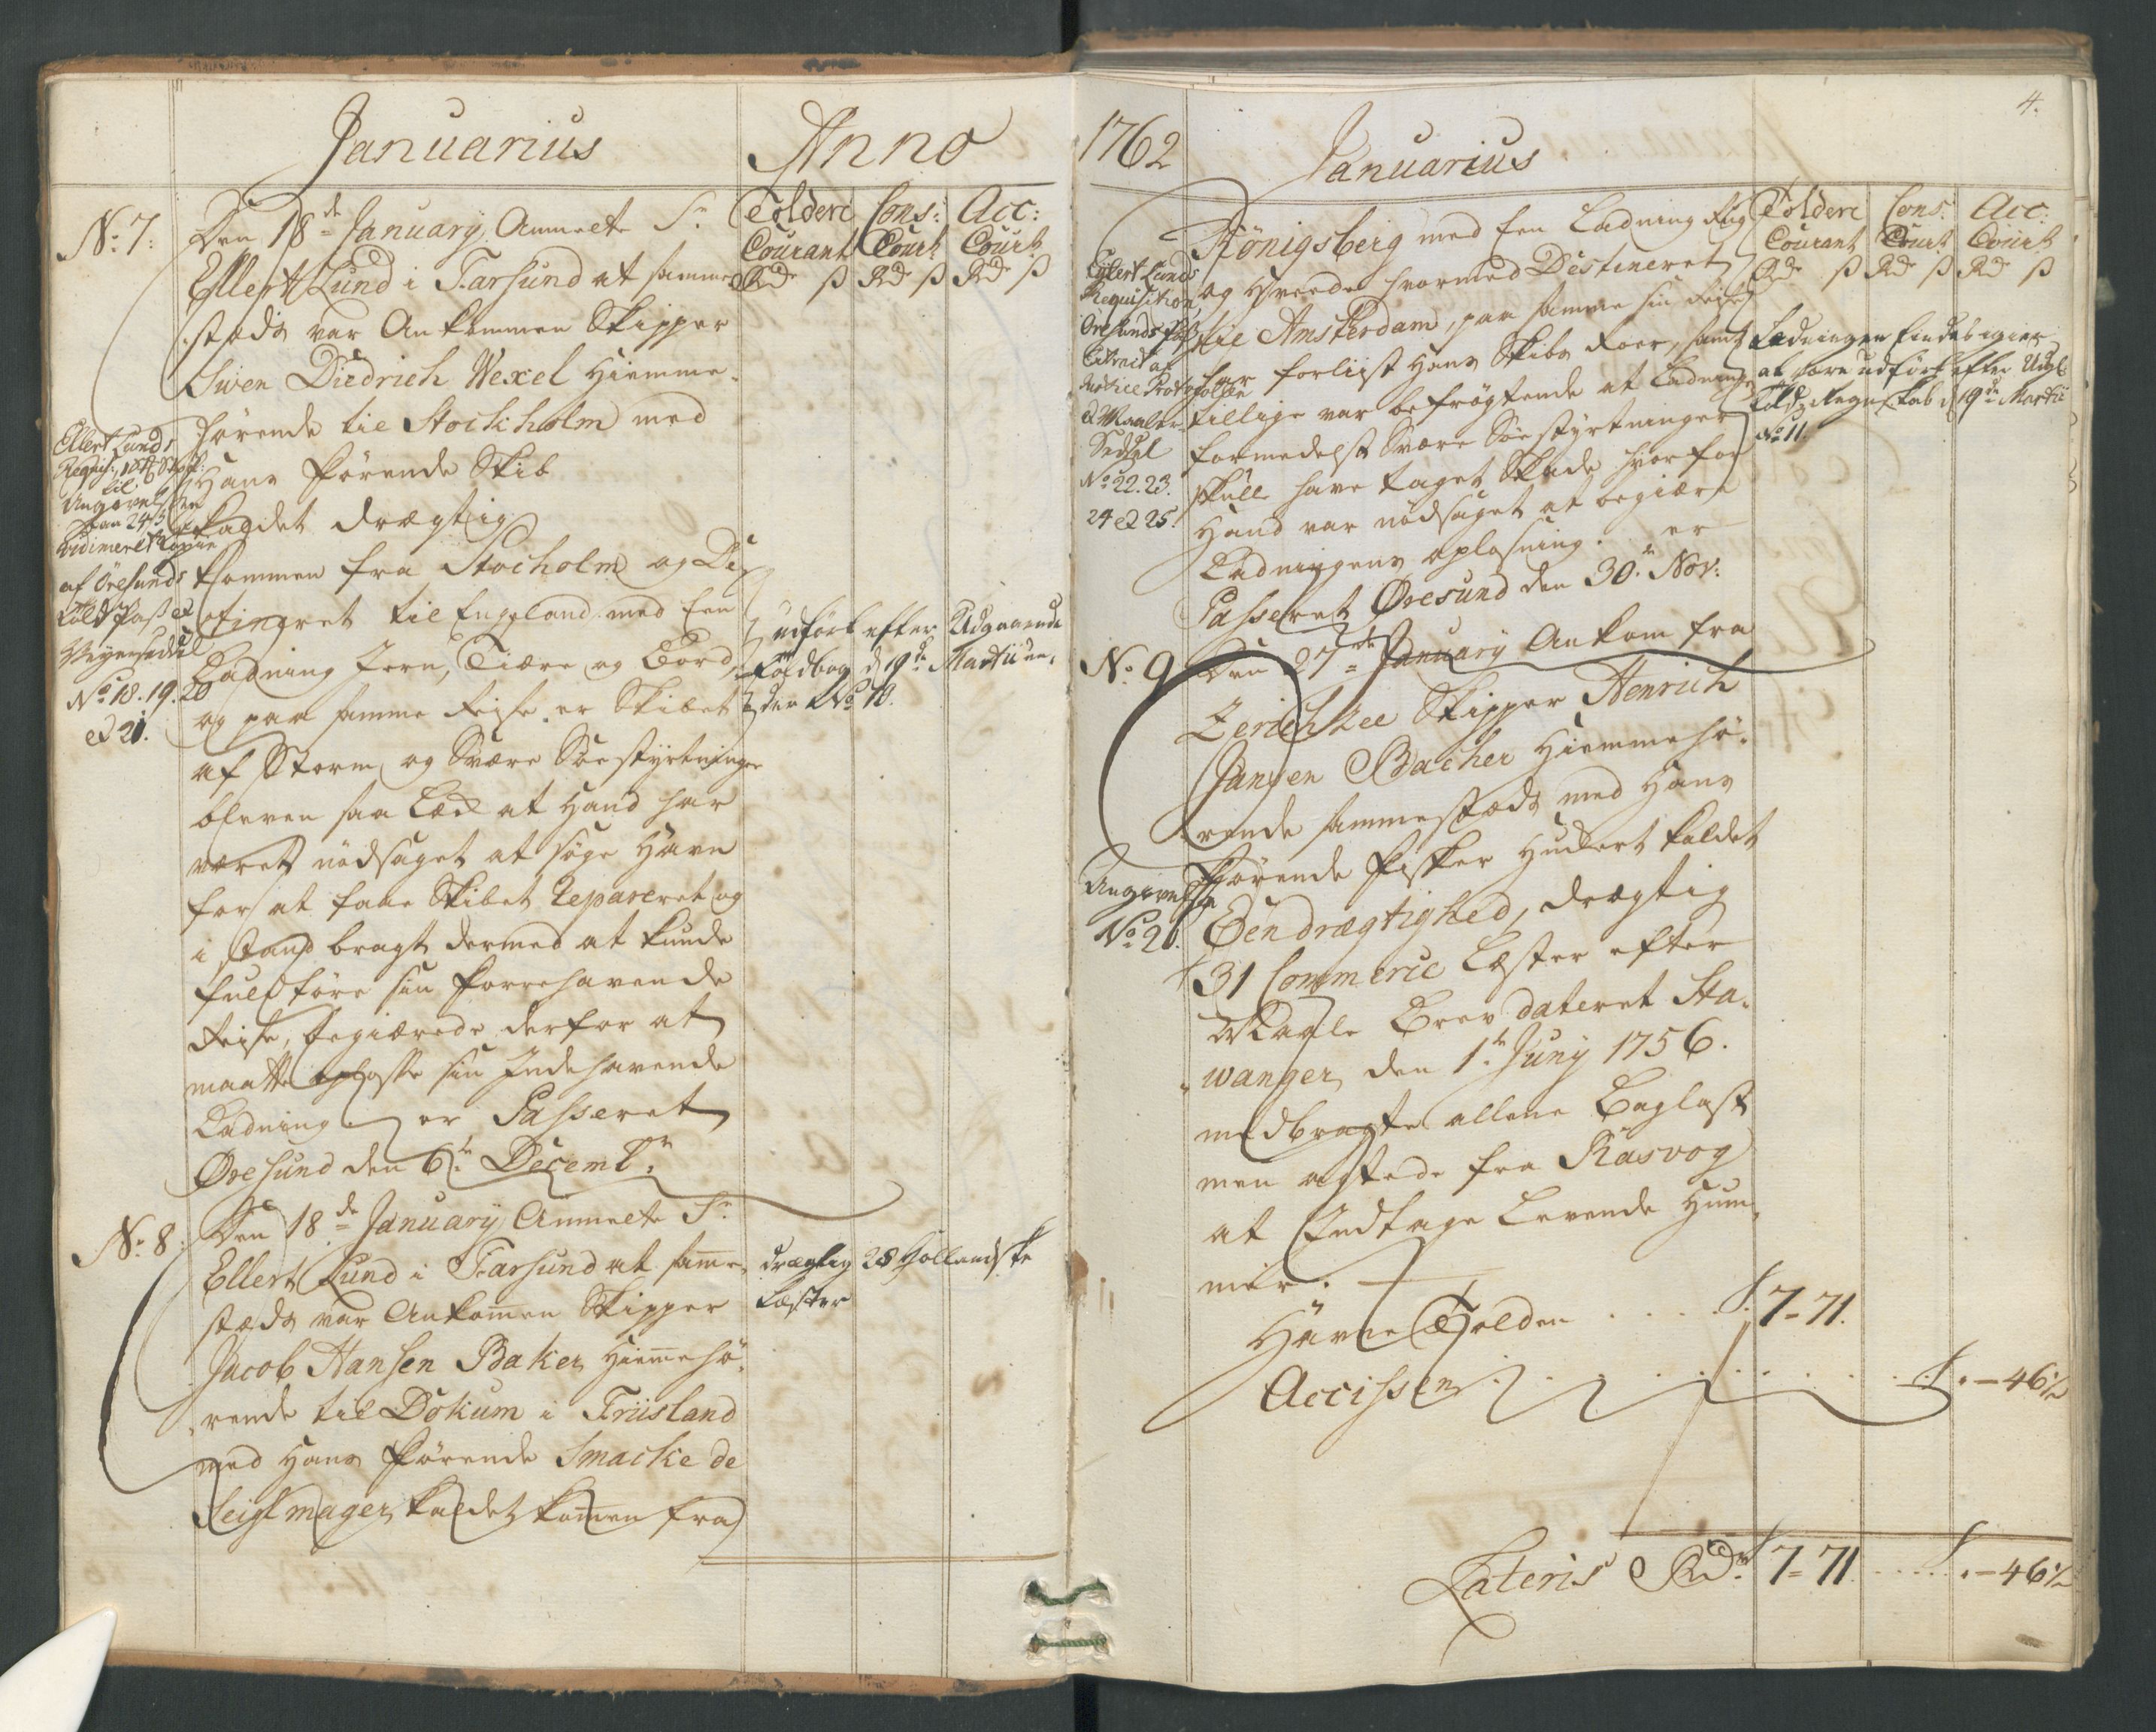 Januarius
Anno
Tolderi Cons: Acc:
Courant Court Court
Rd ß Rd ß Rd ß
No. 7:
Den 18de January Anmelte Sr.
Ellert Lund i Farsund at samme
stæds var Ankommen Skipper
Swen Diedrich Wexel Hiemme¬
hørende til Stockholm med
Hans førende Skib
kaldet drægtig
kommen fra Stocholm og De¬
stineret til Engeland med Een
Ladning Jern, Tiære og Bord
og paa samme Reise er Skibet
af Storm og Svære Søestyrtninger
bleven saa Læk at Hand har
været nødsaget at søge Havn
for at faae Skibet Repareret og
i stand bragt dermed at kunde
fuldføre sin forrehavende
Reise, begiærede derfor at
maatte oplosse sin Indehavende
Ladning er Passeret
Øresund den 6te. Decembr.
Ellert Lunds
Requisi:
til
Angivelsen
Vidimeret Copie
af Øresunds
Told Pass et
Veyersedel
No. 18. 19. 20
et 21.
udført efter Udgaaende
Toldbog d 19de Martii un¬
der No. 10.
No. 8:
Den 18de January Anmelte Sr.
Ellert Lund i Farsund at samme¬
stæds var Ankomen Skipper
Jacob Hansen Baker Hiemehø¬
rende til Dokum i Friisland
med Hans førende Smacke de
Seigl mager kaldet komen fra
drægtig 28 Hollandske
Læster
1762
Januarius
4.
Tolderi Cons: Acc:
Courant Court Court
Rd ß Rd ß Rd ß
Königsberg med Een Ladning Rug
og Hveede hvormed Destineret
til Amsterdam, paa samme sin Reise
har forliist Hans Skibs Roer, samt
tillige var befrøgtende at Ladningen
formedelst Svære Søestyrtninger
skulle have taget Skade hvorfor
Hand var nødsaget at begiære
Ladningens oplosning. er
Passeret Øresund den 30te. Nov:
Ellert Lunds
Requisition
Øresunds Pass
Extract af
Notice Protocollen
et Maaler
Seddel
No. 22. 23.
24 et 25.
Ladningen findes igien
at være udført efter Udg:
Told Regnskab d 19de Martii
No. 11.
No. 9
Den 27de January Ankom fra
Zerichzee Skipper Henrich
Jansen Backer Hiemmehø¬
rende sammestæds med Hans
førende fisker Huckert kaldet
Eendrægtighed, drægtig
31 Commerce Læster efter
Maale Brev dateret Sta¬
wanger den 1te. Juny 1756.
medbragte allene Baglast
men agtede fra Rasvog
at Indtage Levende Hum¬
mer.
Angivelse
No. 26.
Havne Tolden . . . . 7 = 71.
Accissen . . . . . . . . . - 46½
Lateris Rdr. 7 = 71. . . . . . - 46½